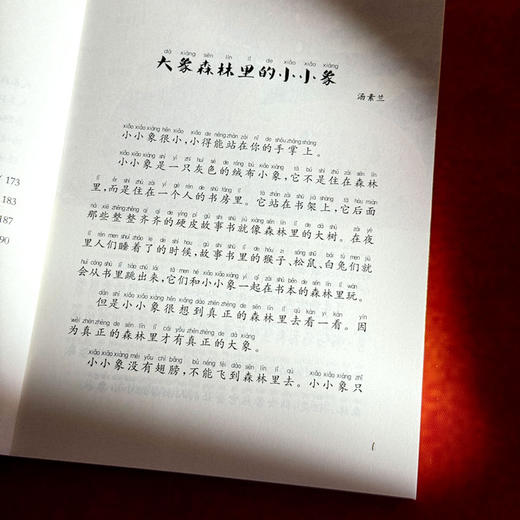 173
183
187
90
dà xiàng sēn lín lǐ de xiǎo xiǎo xiàng
大象森林里的小小象
汤素兰
xiǎo xiǎo xiàng hěn xiǎo xiǎo de néng zhàn zài nǐ de shǒu zhǎng shàng
小小象很小，小得能站在你的手掌上。
xiǎo xiǎo xiàng shì yì zhī huī sè de róng bù xiǎo xiàng tā bú shì zhù zài sēn lín
小小象是一只灰色的绒布小象，它不是住在森林
lǐ ér shì zhù zài yí gè rén de shū fáng lǐ tā zhàn zài shū jià shàng tā hòu miàn
里，而是住在一个人的书房里。它站在书架上，它后面
nà xiē zhěng zhěng qí qí de yìng pí gù shi shū jiù xiàng sēn lín lǐ de dà shù zài yè
那些整整齐齐的硬皮故事书就像森林里的大树。在夜
lǐ rén men shuì zháo le de shí hou gù shi shū lǐ de hóu zi sōng shǔ bái tù men jiù
里人们睡着了的时候，故事书里的猴子、松鼠、白兔们就
huì cóng shū lǐ tiào chū lái tā men hé xiǎo xiǎo xiàng yì qǐ zài shū běn de sēn lín lǐ wán
会从书里跳出来，它们和小小象一起在书本的森林里玩。
dàn shì xiǎo xiǎo xiàng hěn xiǎng dào zhēn zhèng de sēn lín lǐ qù kàn yi kàn yīn
但是小小象很想到真正的森林里去看一看。因
wèi zhēn zhèng de sēn lín lǐ cái yǒu zhēn zhèng de dà xiàng
为真正的森林里才有真正的大象。
xiǎo xiǎo xiàng méi yǒu chì bǎng bù néng fēi dào sēn lín lǐ qù xiǎo xiǎo xiàng zhǐ
小小象没有翅膀，不能飞到森林里去。小小象只
1